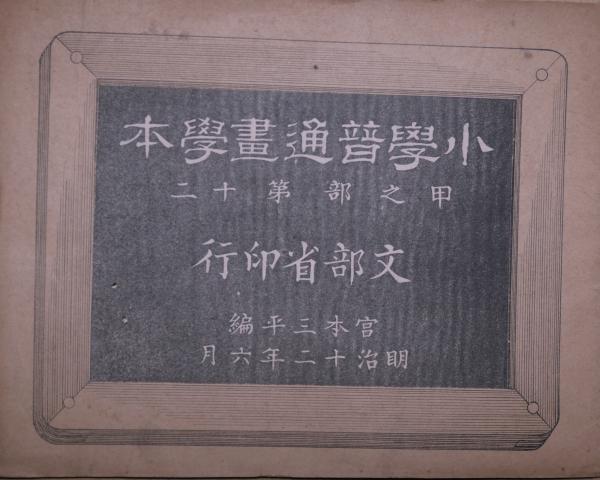 小學普通畫學本
甲之部第十二
文部省印行
宮本三平編
明治十二年六月